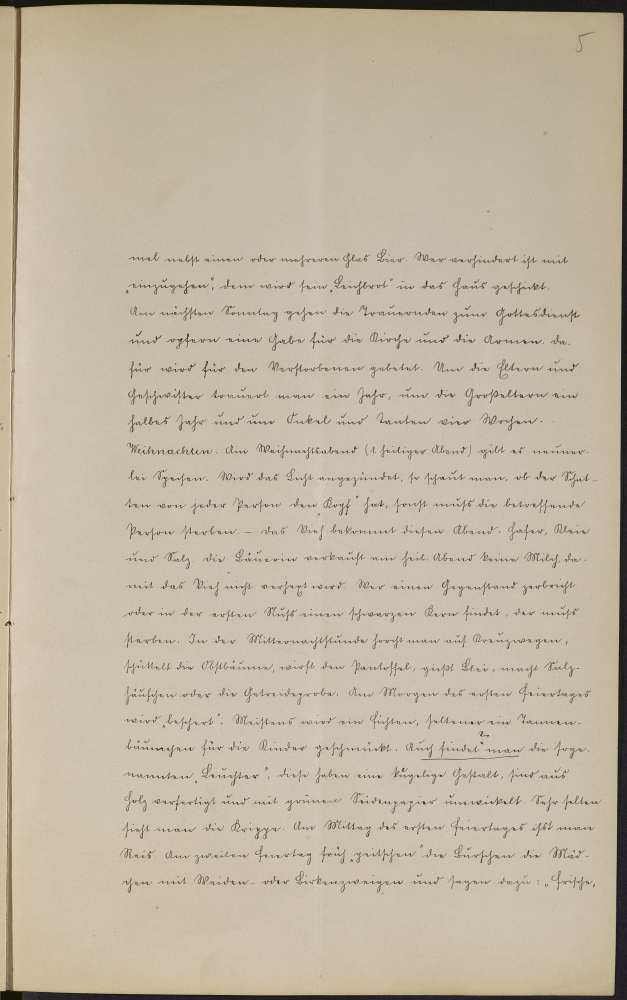 5
mel nebst einen oder mehreren Glas Bier. Wer verhindert ist mit
„einzugehen“, dem wird sein „Leichbrot“ in das Haus geschickt.
Am nächsten Sonntag gehen die Trauernden zum Gottesdienst
und opfern eine Gabe für die Kirche und die Armen. Da-
für wird für den Verstorbenen gebetet. Um die Eltern und
Geschwister trauert man ein Jahr, um die Großeltern ein
halbes Jahr und um Onkel und Tanten vier Wochen.
Weihnachten. Am Weihnachtsabend (1 heiliger Abend) gibt es neuner-
lei Speisen. Wird das Licht angezündet, so schaut man, ob der Schat-
ten von jeder Person den „Kopf“ hat, sonst muß die betreffende
Person sterben. – Das Vieh bekommt diesen Abend Hafer, Kleie
und Salz. Die Bäuerin verkauft am heil. Abend keine Milch, da-
mit das Vieh nicht verhext werd. Wer einen Gegenstand zerbricht
oder in der ersten Nuß einen schwarzen Kern findet, der muß
sterben. In der Mitternachtstunde horcht man auf Kreuzwegen,
schüttelt die Obstbäume, wirft den Pantoffel, gießt Blei, macht Salz-
häufchen oder die Getreideprobe. Am Morgen des ersten Feiertages
wird „beschert“. Meistens wird ein Fichten, seltener ein Tannen-
bäumchen für die Kinder geschmückt. Auch findet man die soge-
nannten „Leuchter“, diese haben eine kugelige Gestalt, sind aus
Holz verfertigt und mit grünen Seidenpapier umwickelt. Sehr selten
sieht man die Krippe. Am Mittag des ersten Feiertages ißt man
Reis. Am zweiten Feiertag früh „peitschen“ die Burschen die Mäd-
chen mit Weiden- oder Birkenzweigen und sagen dazu: „Frische,